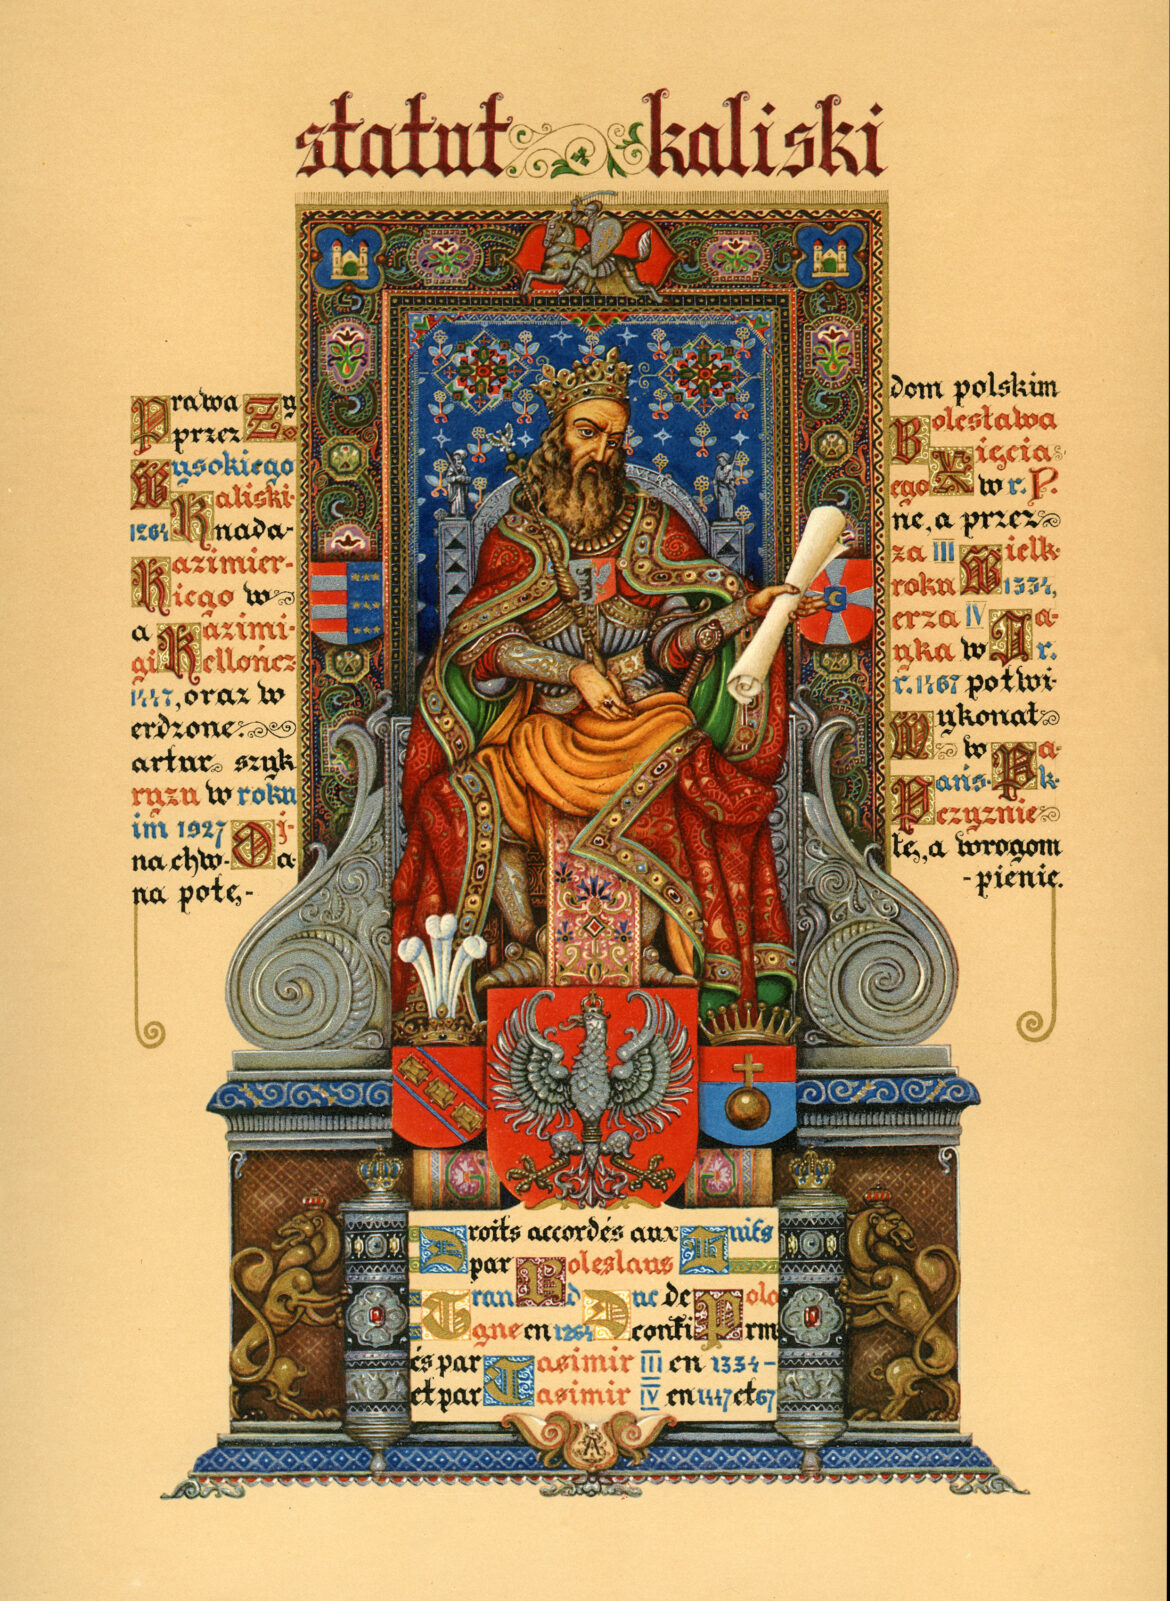 statut kaliski
Prawa Zy dom polskim
przez Bolesława
Wysokiego Xięcia
Kaliski- ego w r. P.
1264 nada- ne, a przez
Kazimier- za III Wielk-
iego w roku 1334,
a Kazimi- erza IV Ja-
giellończ yka w r.
1447, oraz w r. 1467 potwi-
erdzone. Wykonał
artur szyk w Pa-
ryzu w roku Pańs-k-
im 1927 Oj- czyznie
na chw-a łę, a wrogom
na potę,- -pienie.
Droits accordés aux Juifs
par Boleslaus
Grand Duc de Polo
gne en 1264 confirm
és par Casimir III en 1334-
et par Casimir IV en 1447 et 67